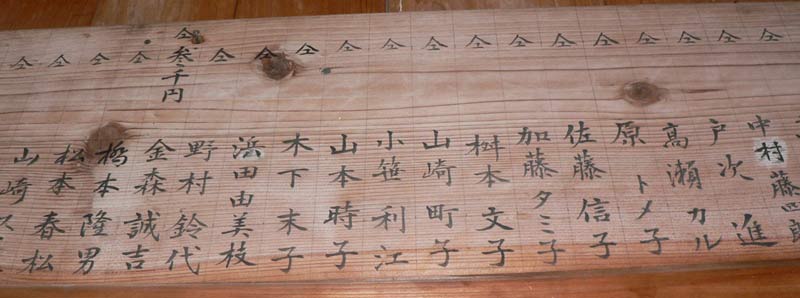 仝 中村藤四郎
仝 戸次進
仝 高瀬カル
仝 原トメ子
仝 佐藤信子
仝 加藤タミ子
仝 桝本文子
仝 山崎町子
仝 小笹利江
仝 山本時子
仝 木下末子
仝 浜田由美枝
仝参千円 野村鈴代
仝 金森誠吉
仝 橋本隆男
仝 松本春松
仝 山崎